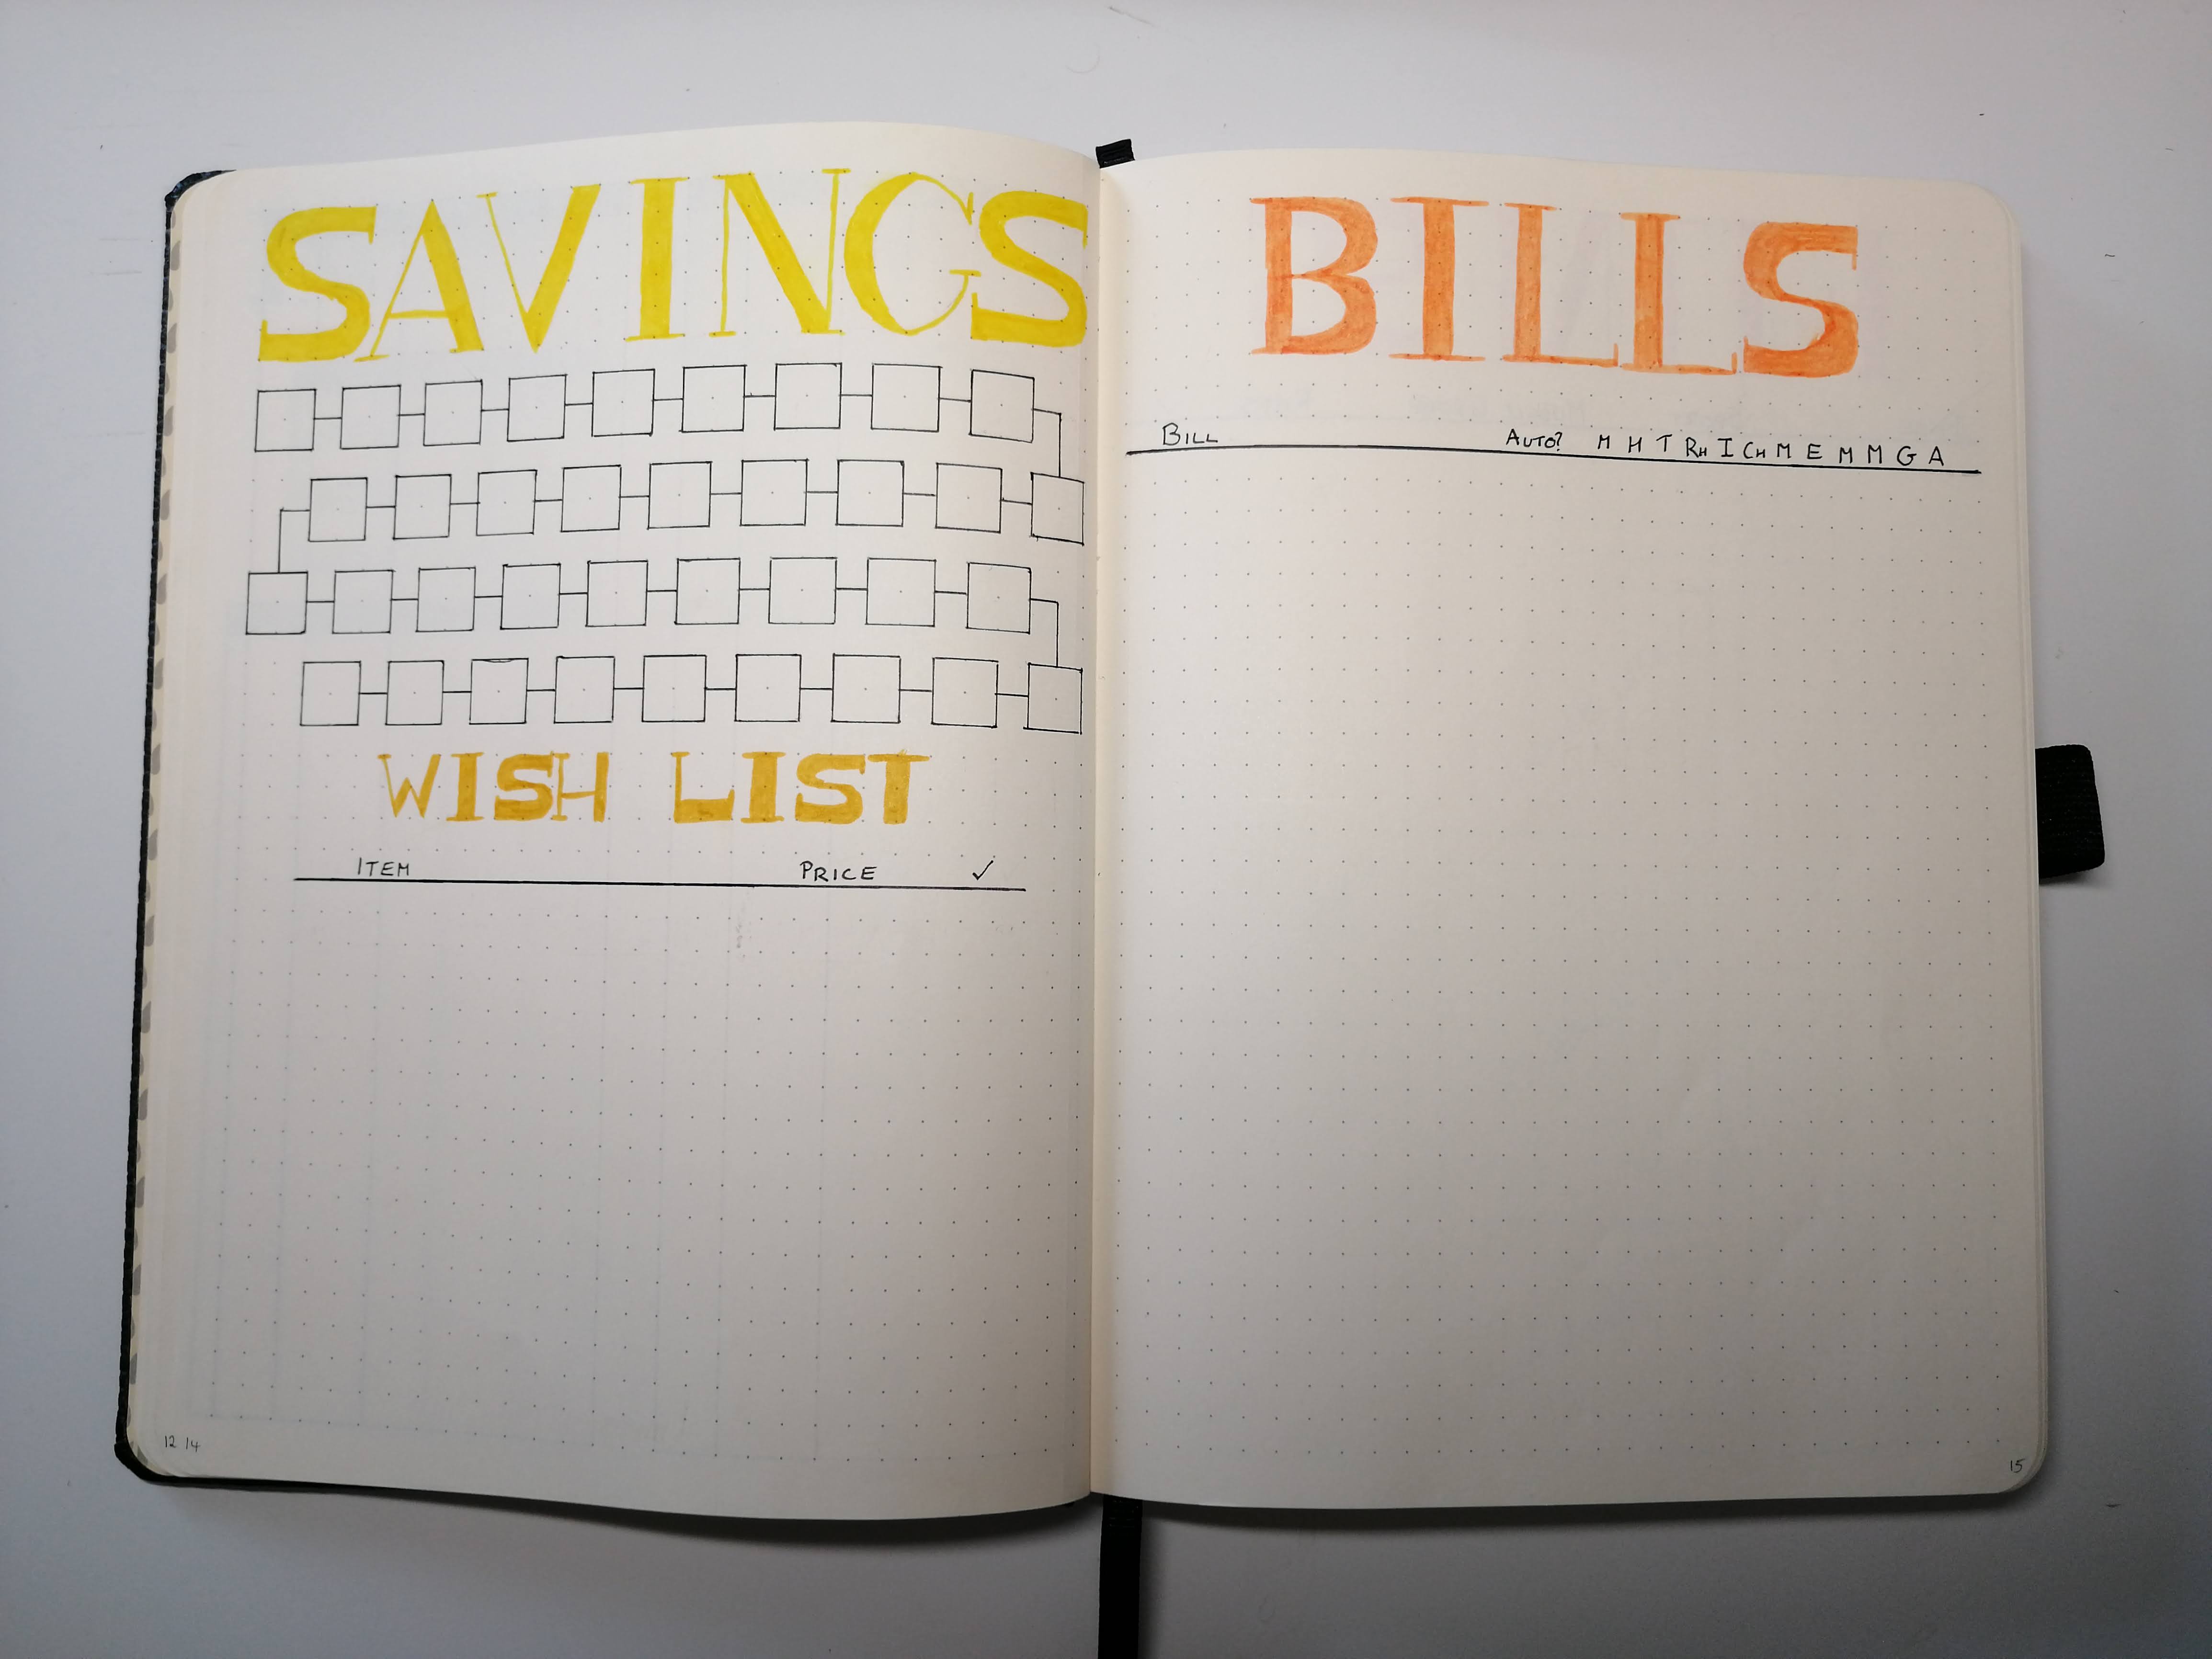 SAVINGS
WISH LIST
ITEM PRICE ✓
12 14
BILLS
BILL AUTO? M H T RH I CH M E M M G A
15